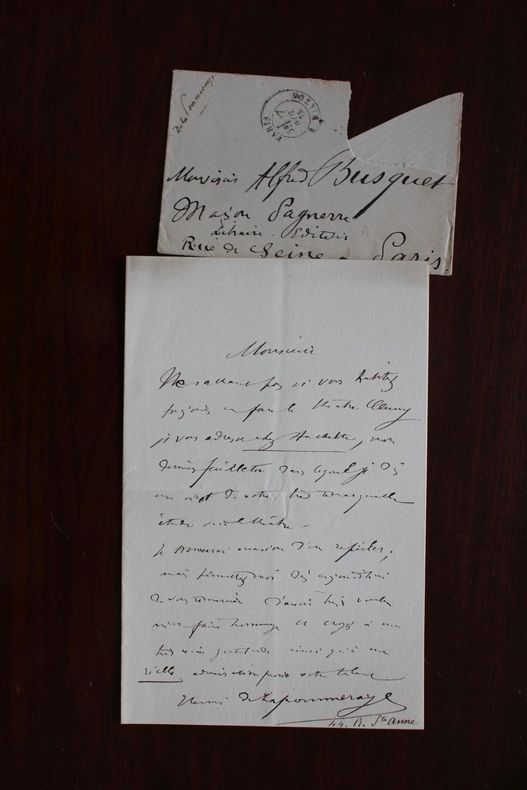 De la Pommeraye
PARIS
Monsieur Alfred Busquet
Maison Pagnerre
Libraire Editeur
Rue de Seine Paris.
Monsieur
Ne sachant pas si vous habitez
toujours en face le théâtre Cluny
je vous adresse chez Hachette, mon
dernier feuilleton dans lequel je dis
un mot de votre très remarquable
étude sur le théâtre.
Je trouverai occasion d'en reparler;
mais permettez moi dès aujourd'hui
de vous remercier d'avoir bien voulu
m'en faire hommage et croyez à ma
très vive gratitude ainsi qu'à ma
vieille admiration pour votre talent
Henri de Lapommeraye
44. R. Ste Anne